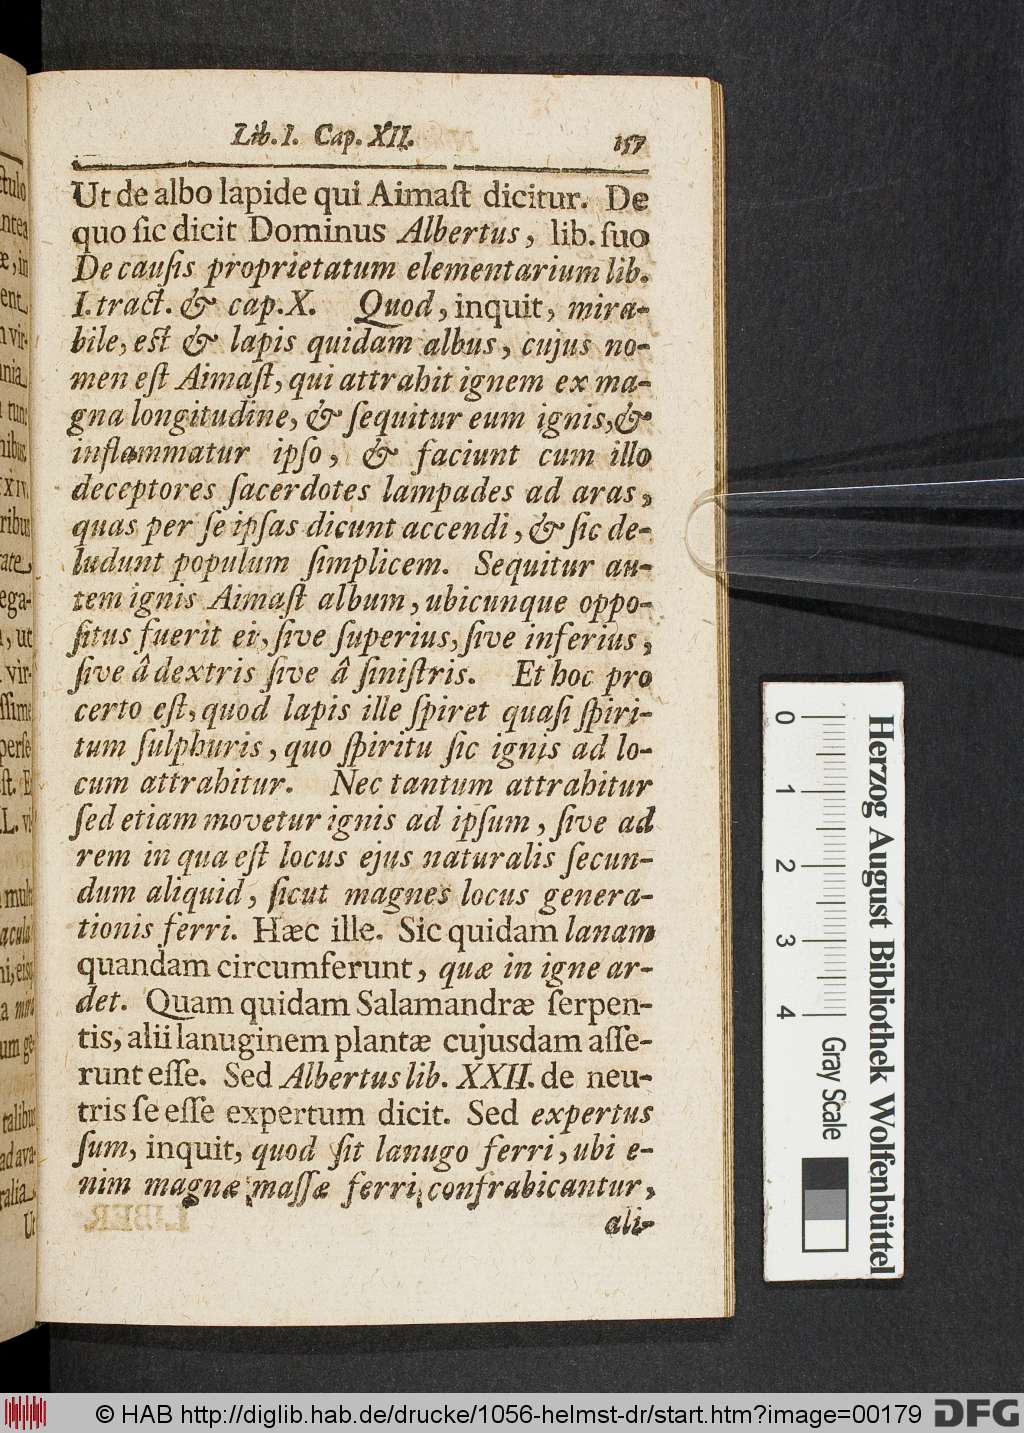 Lib. I. Cap. XII. 157
Ut de albo lapide qui Aimaſt dicitur. De
quo ſic dicit Dominus Albertus, lib. ſuo
De cauſis proprietatum elementarium lib.
I. tract. & cap. X. Quod, inquit, mira-
bile, eſt & lapis quidam albus, cujus no-
men eſt Aimaſt, qui attrahit ignem ex ma-
gna longitudine, & ſequitur eum ignis, &
inflammatur ipſo, & faciunt cum illo
deceptores ſacerdotes lampades ad aras,
quas per ſe ipſas dicunt accendi, & ſic de-
ludunt populum ſimplicem. Sequitur au-
tem ignis Aimaſt album, ubicunque oppo-
ſitus fuerit ei, ſive ſuperius, ſive inferius,
ſive â dextris ſive â ſiniſtris. Et hoc pro
certo eſt, quod lapis ille ſpiret quaſi ſpiri-
tum ſulphuris, quo ſpiritu ſic ignis ad lo-
cum attrahitur. Nec tantum attrahitur
ſed etiam movetur ignis ad ipſum, ſive ad
rem in qua eſt locus ejus naturalis ſecun-
dum aliquid, ſicut magnes locus genera-
tionis ferri. Hæc ille. Sic quidam lanam
quandam circumferunt, quæ in igne ar-
det. Quam quidam Salamandræ ſerpen-
tis, alii lanuginem plantæ cujusdam aſſe-
runt eſſe. Sed Albertus lib. XXII. de neu-
tris ſe eſſe expertum dicit. Sed expertus
ſum, inquit, quod ſit lanugo ferri, ubi e-
nim magnæ maſſæ ferri confrabicantur,
ali-
Herzog August Bibliothek Wolfenbüttel
0 1 2 3 4
Gray Scale
© HAB http://diglib.hab.de/drucke/1056-helmst-dr/start.htm?image=00179
DFG